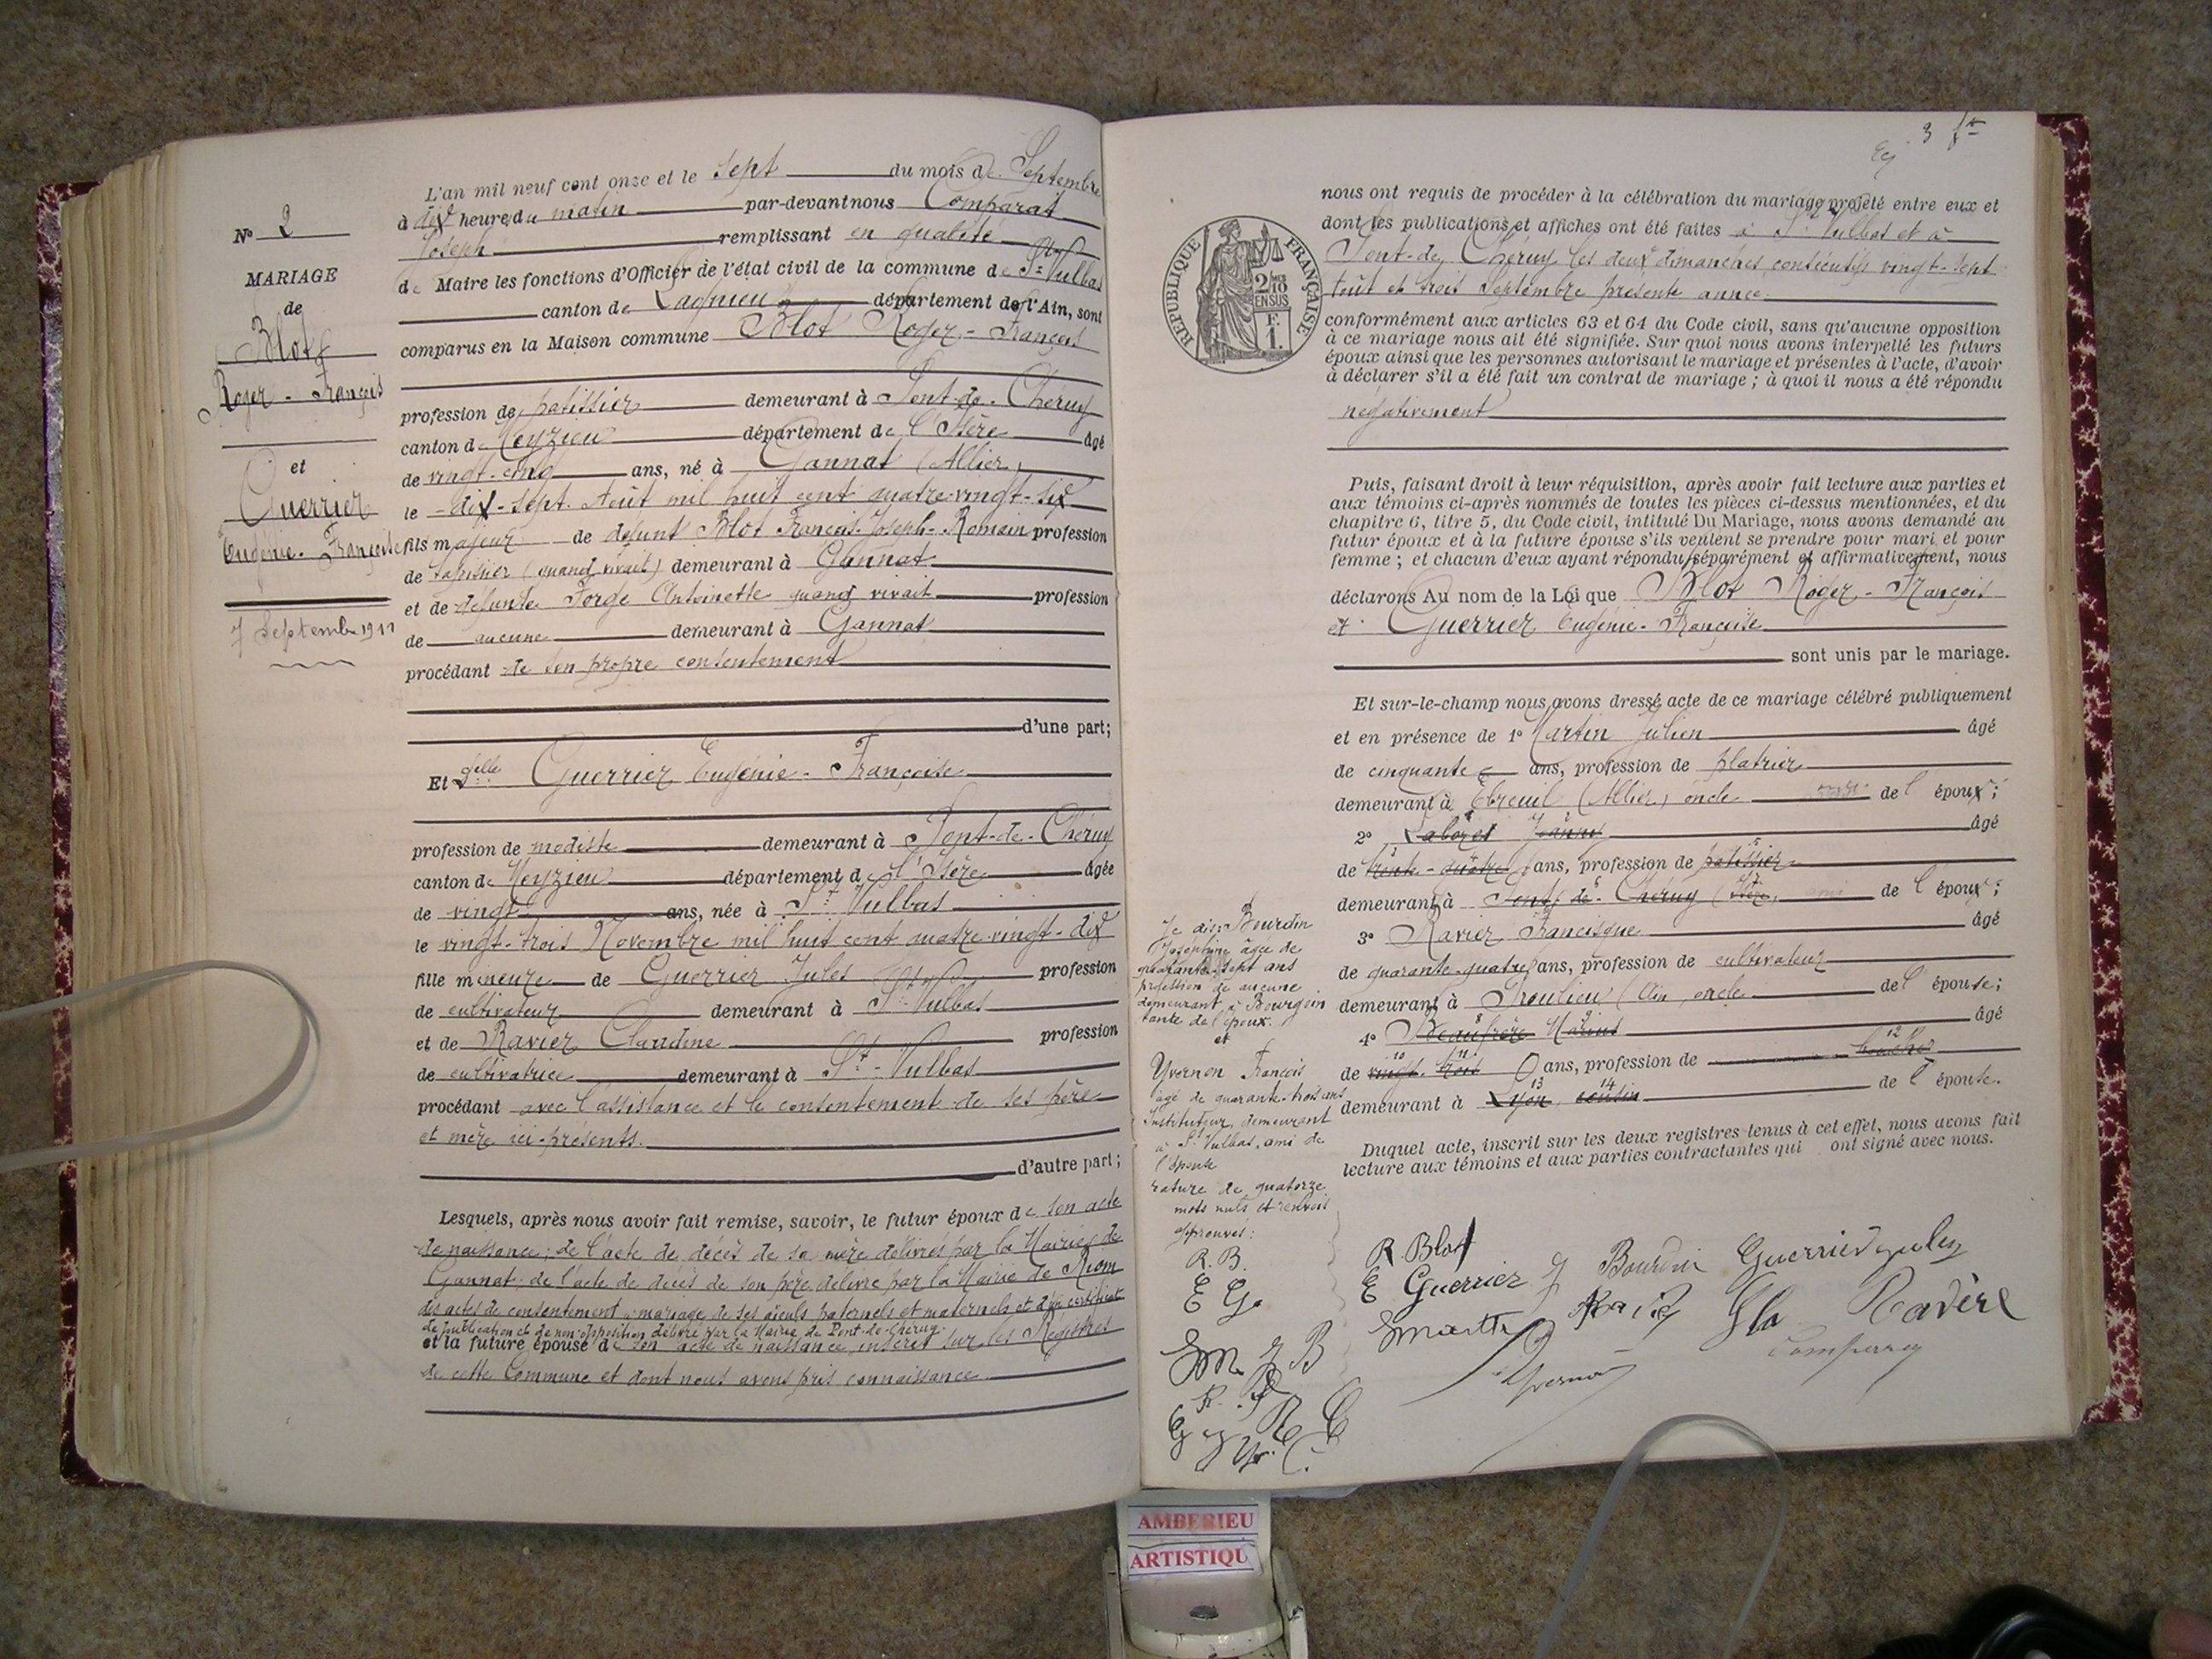 N° 2
MARIAGE
de
Blot
Roger - François
et
Guerrier
Eugénie - Françoise
7 Septembre 1911
L'an mil neuf cent onze et le sept du mois de Septembre
à dix heures du matin par-devant nous Comparat
Joseph remplissant en qualité
de Maire les fonctions d'Officier de l'état civil de la commune de St Vulbas
canton de Lagnieu département de l'Ain, sont
comparus en la Maison commune Blot Roger - François
profession de patissier demeurant à Pont-de-Chéruy
canton de Meyzieu département de l'Isère âgé
de vingt-cinq ans, né à Gannat (Allier)
le dix-sept Août mil huit cent quatre-vingt-six
fils majeur de défunt Blot François-Joseph-Romain profession
de tapissier (quand vivait) demeurant à Gannat
et de defunte Forge Antoinette quand vivait profession
de aucune demeurant à Gannat
procédant de son propre consentement
d'une part;
Et Delle Guerrier Eugénie - Françoise
profession de modiste demeurant à Pont-de-Chéruy
canton de Meyzieu département de l'Isère âgée
de vingt ans, née à St Vulbas
le vingt-trois Novembre mil huit cent quatre-vingt-dix
fille mineure de Guerrier Jules profession
de cultivateur demeurant à St-Vulbas
et de Ravier Claudine profession
de cultivatrice demeurant à St-Vulbas
procédant avec l'assistance et le consentement de ses père
et mère ici-présents.
d'autre part;
Lesquels, après nous avoir fait remise, savoir, le futur époux de son acte
de naissance; de l'acte de décès de sa mère délivrés par la Mairie de
Gannat; de l'acte de décès de son père délivré par la Mairie de Riom
des actes de consentement à mariage de ses aïeuls paternels et maternels et d'un certificat
de publication et de non-opposition délivré par la Mairie de Pont-de-Chéruy.
et la future épouse de son acte de naissance inscrit sur les Registres
de cette Commune et dont nous avons pris connaissance
3
REPUBLIQUE FRANÇAISE
2/10 EN SUS
F. 1.
nous ont requis de procéder à la célébration du mariage projeté entre eux et
dont les publications et affiches ont été faites à St Vulbas et à
Pont-de-Chéruy les deux dimanches consécutifs vingt-sept
Août et trois Septembre présente année.
conformément aux articles 63 et 64 du Code civil, sans qu'aucune opposition
à ce mariage nous ait été signifiée. Sur quoi nous avons interpellé les futurs
époux ainsi que les personnes autorisant le mariage et présentes à l'acte, d'avoir
à déclarer s'il a été fait un contrat de mariage ; à quoi il nous a été répondu
négativement
Puis, faisant droit à leur réquisition, après avoir fait lecture aux parties et
aux témoins ci-après nommés de toutes les pièces ci-dessus mentionnées, et du
chapitre 6, titre 5, du Code civil, intitulé Du Mariage, nous avons demandé au
futur époux et à la future épouse s'ils veulent se prendre pour mari et pour
femme ; et chacun d'eux ayant répondu séparément et affirmativement, nous
déclarons Au nom de la Loi que Blot Roger - François
et Guerrier Eugénie - Françoise
sont unis par le mariage.
Et sur-le-champ nous avons dressé acte de ce mariage célébré publiquement
et en présence de 1° Martin Julien âgé
de cinquante ans, profession de platrier
demeurant à Ebreuil (Allier) oncle de l'époux;
2° Laboret âgé
de trente-quatre ans, profession de patissier
demeurant à Pont de Chéruy (Isère) ami de l'époux;
3° Ravier Francisque âgé
de quarante-quatre ans, profession de cultivateur
demeurant à Proulieu (Ain) oncle de l'épouse;
4° Beaufrère Marius âgé
de vingt-trois ans, profession de boucher
demeurant à Lyon, cousin de l'épouse.
Duquel acte, inscrit sur les deux registres tenus à cet effet, nous avons fait
lecture aux témoins et aux parties contractantes qui ont signé avec nous.
Je dis: Bourdin
Joséphine âgée de
quarante-sept ans
profession de aucune
demeurant à Bourgoin
tante de l'époux.
et
Yvernon François
âgé de quarante-trois ans
Instituteur, demeurant
à St Vulbas, ami de
l'épouse
rature de quatorze
mots nuls et renvois
approuvés:
R. B.
E G.
R Blot
E Guerrier J Bourdin Guerrier Jules
Yvernon
AMBERIEU
ARTISTIQU